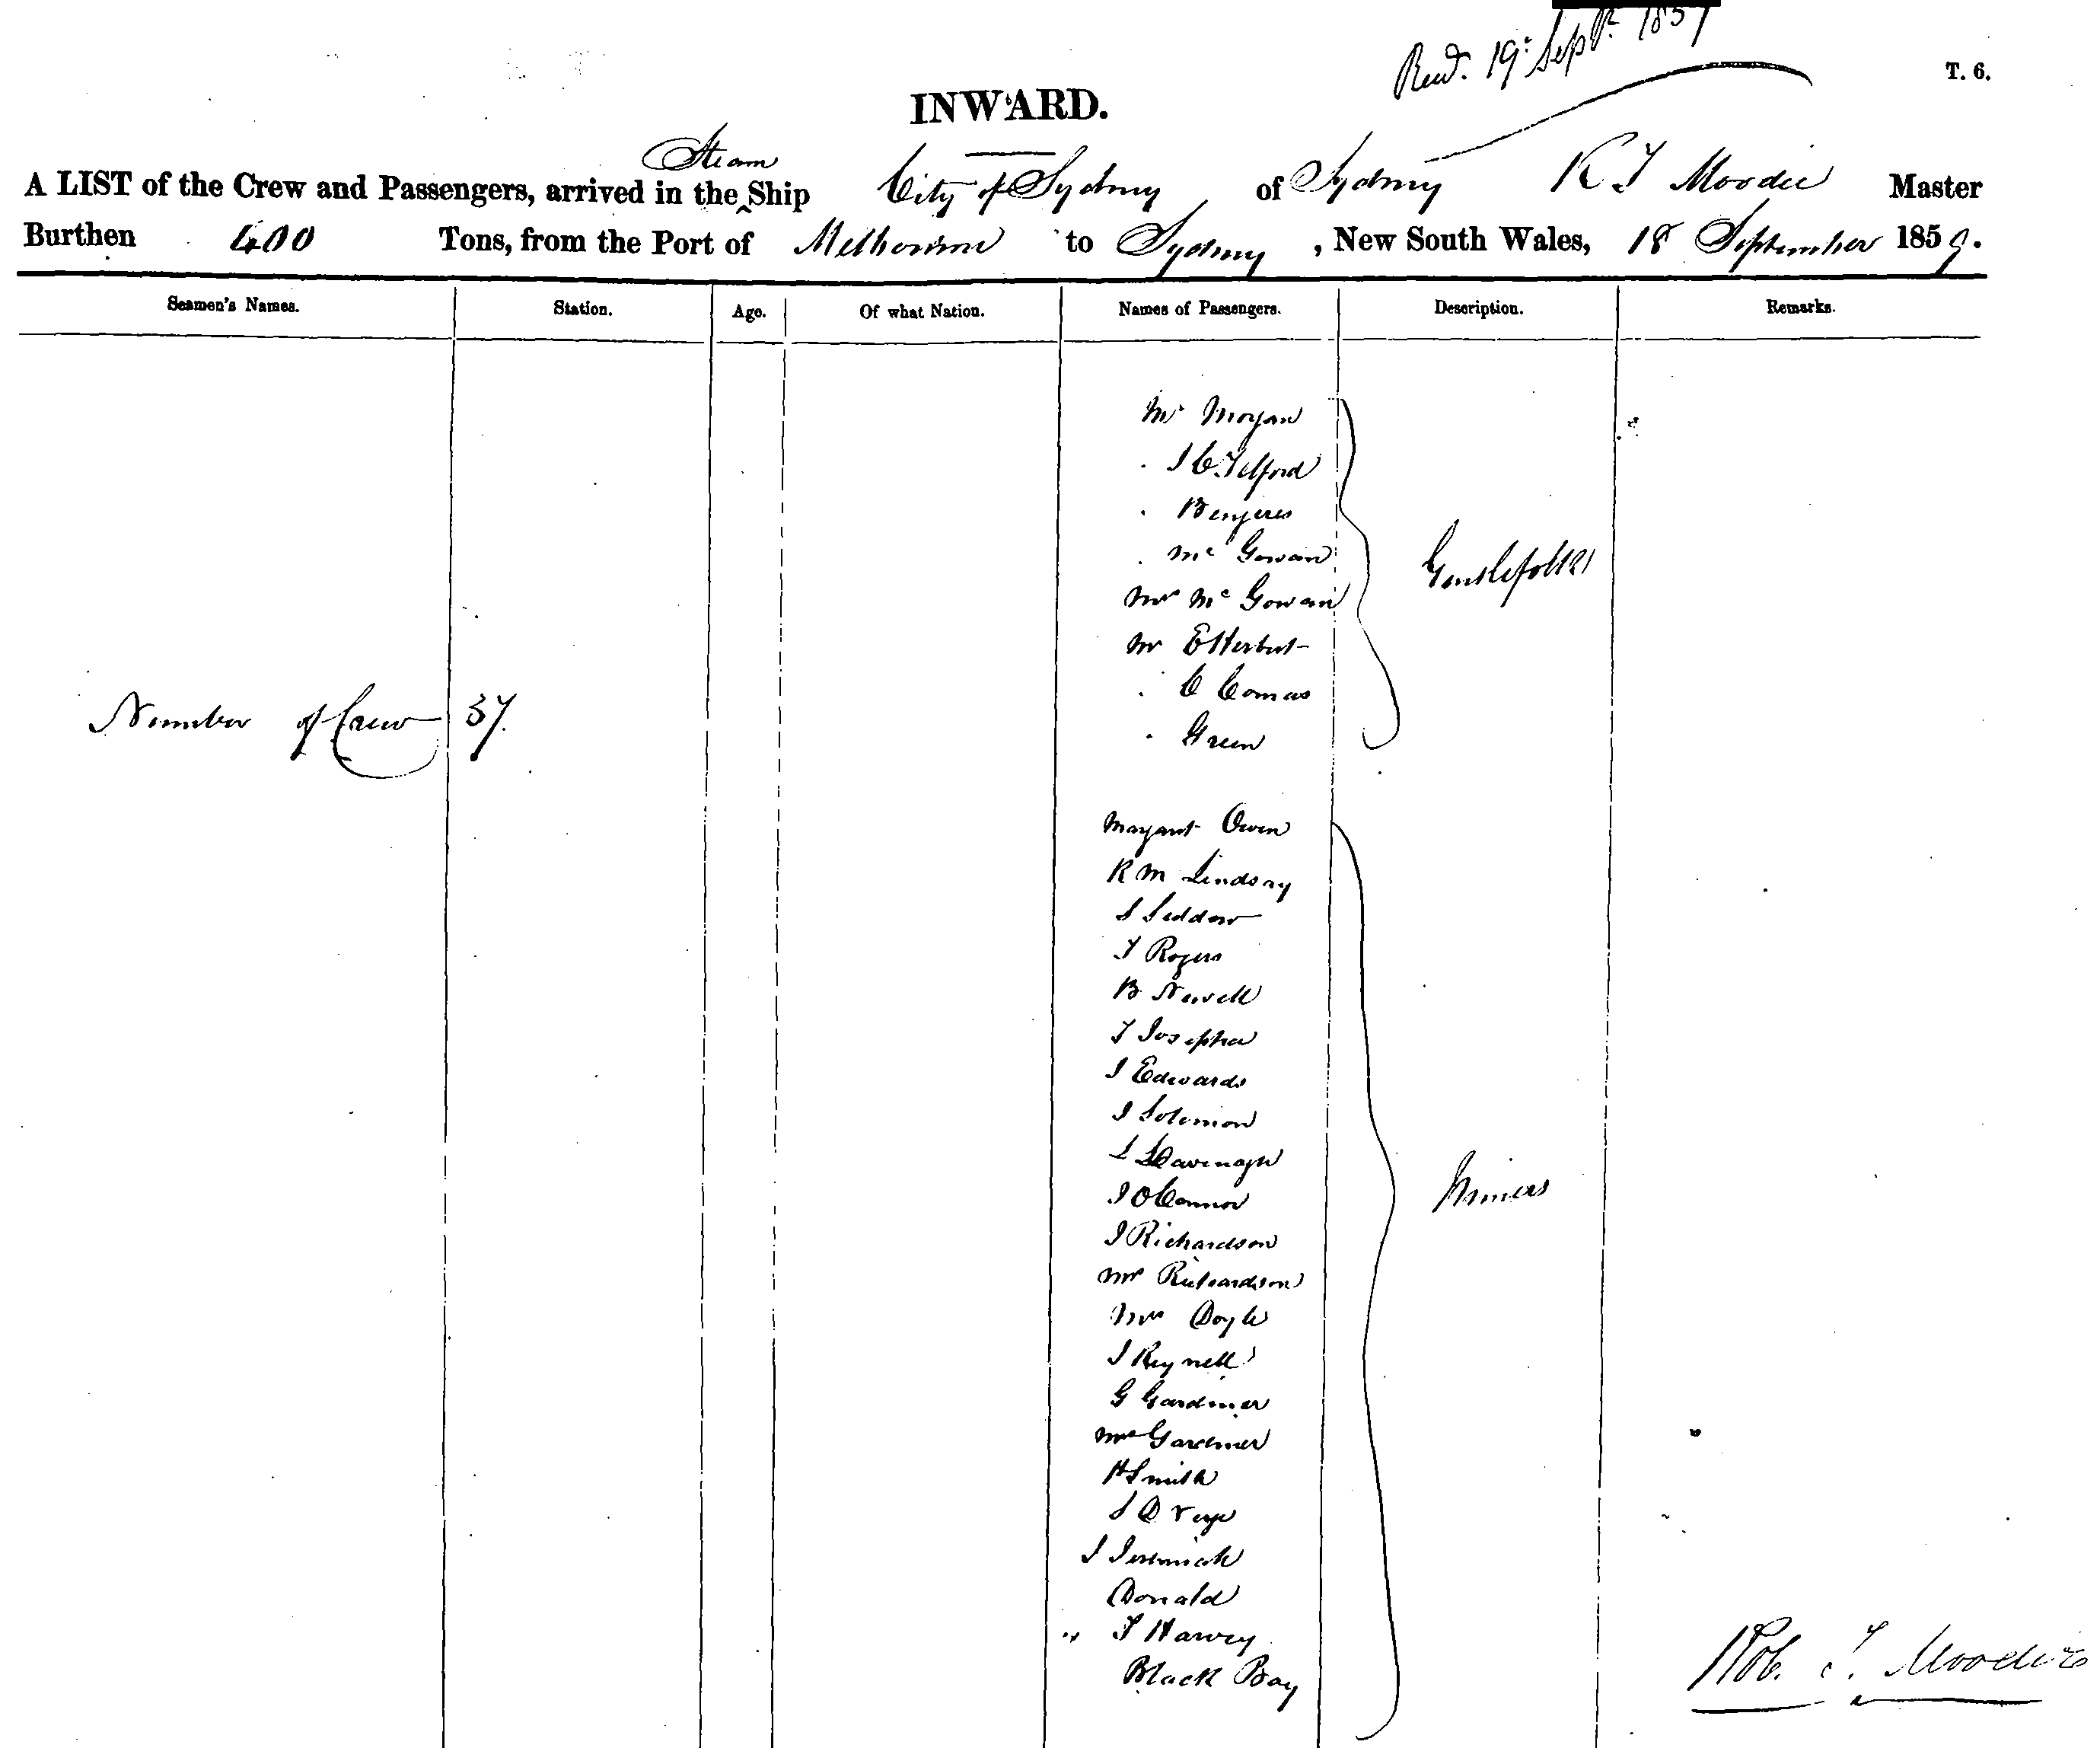 Recd. 19: Septr. 1859
T. 6.
INWARD.
Steam
A LIST of the Crew and Passengers, arrived in the ^ Ship City of Sydney of Sydney R T Moodie Master
Burthen 400 Tons, from the Port of Melbourne to Sydney, New South Wales, 18 September 1859.
Seamen's Names. Station. Age. Of what Nation. Names of Passengers. Description. Remarks.
Mr Morgan
. J C Telford
. Benjeres
. Mc Gowan
Gentlefolks
Mrs Mc Gowan
Mr E Herbert
. C Comas
Number of Crew 37.
. Green
Margaret Owen
R M Lindsay
S Seddow
T Rogers
B Newell
T Josepha
J Edwards
J Solomon
S Cavenagh
Miners
J O'Connor
J Richardson
Mrs Richardson
Mrs Doyle
J Reynell
G Gardiner
Mrs Gardiner
H Smith
S D
J Jeremiah
Donald
" T Harvey
Rob. T. Moodie
Black Boy